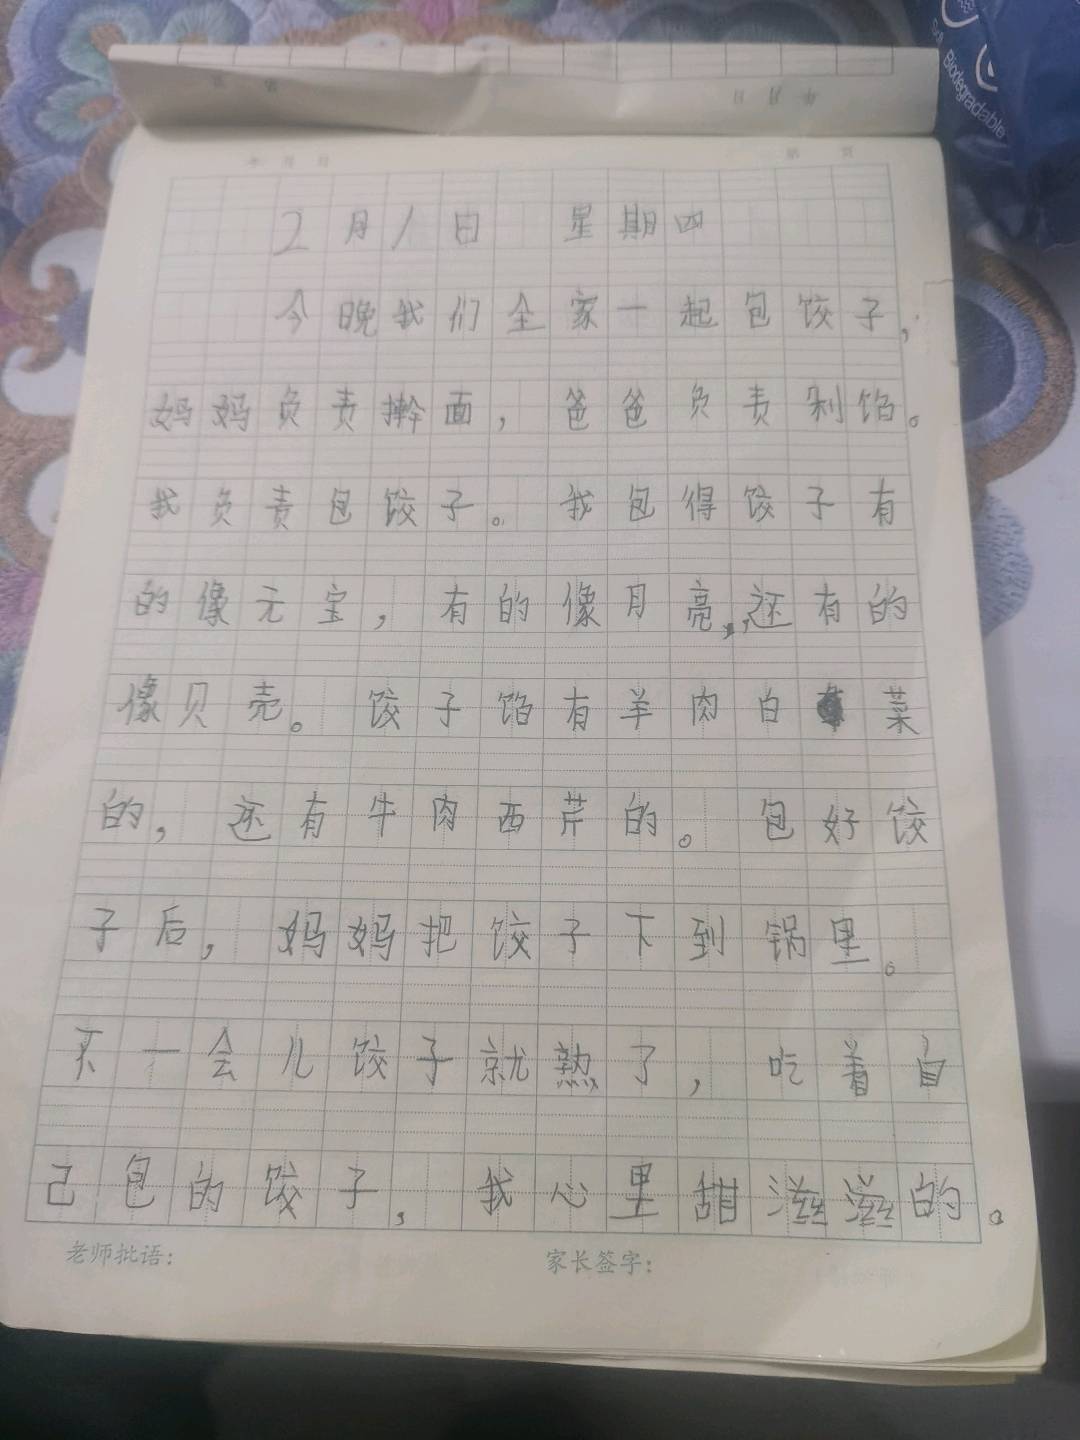 Biodegradable
年 月 日 第 页
2月1日 星期四
今晚我们全家一起包饺子,
妈妈负责擀面,爸爸负责剁馅。
我负责包饺子。我包得饺子有
的像元宝,有的像月亮,还有的
像贝壳。饺子馅有羊肉白菜
的,还有牛肉西芹的。包好饺
子后,妈妈把饺子下到锅里。
不一会儿饺子就熟了,吃着自
己包的饺子,我心里甜滋滋的。
老师批语: 家长签字: